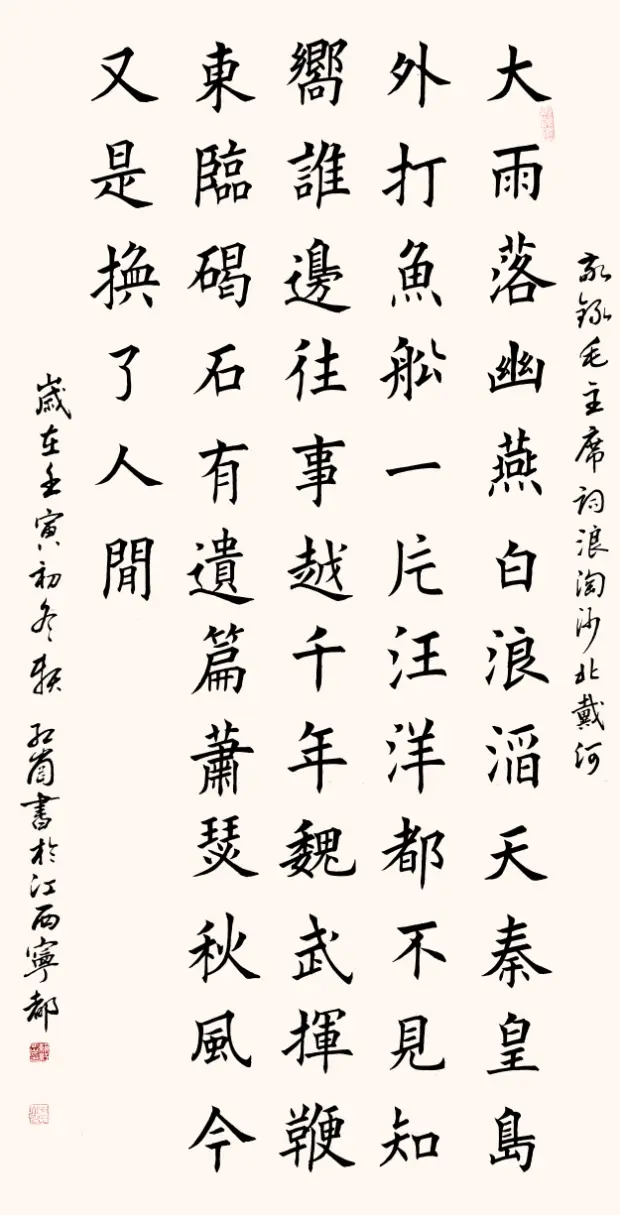 敬錄毛主席詞浪淘沙北戴河
大雨落幽燕白浪滔天秦皇島
外打魚船一片汪洋都不見知
嚮誰邊往事越千年魏武揮鞭
東臨碣石有遺篇蕭瑟秋風今
又是換了人間
歲在壬寅初冬賴紅崗書於江西寧都